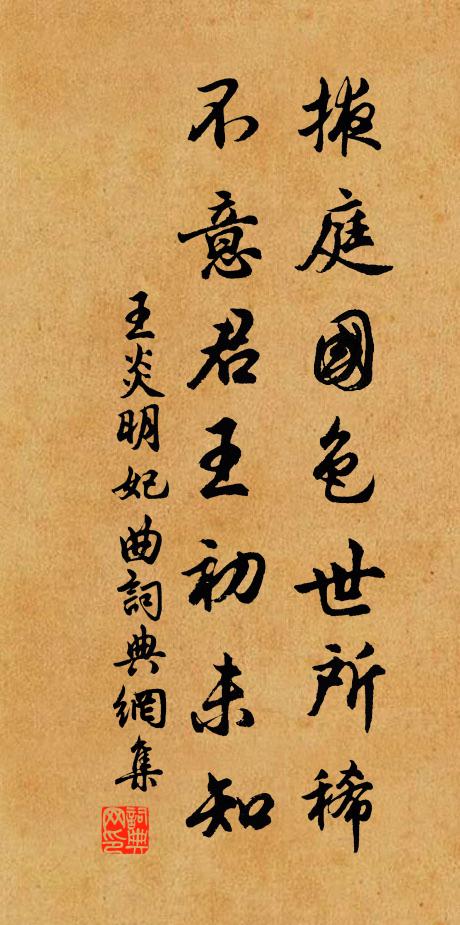 掖庭國色世所稀
不意君王初未知
王炎明妃曲詞典網集
詞典网印